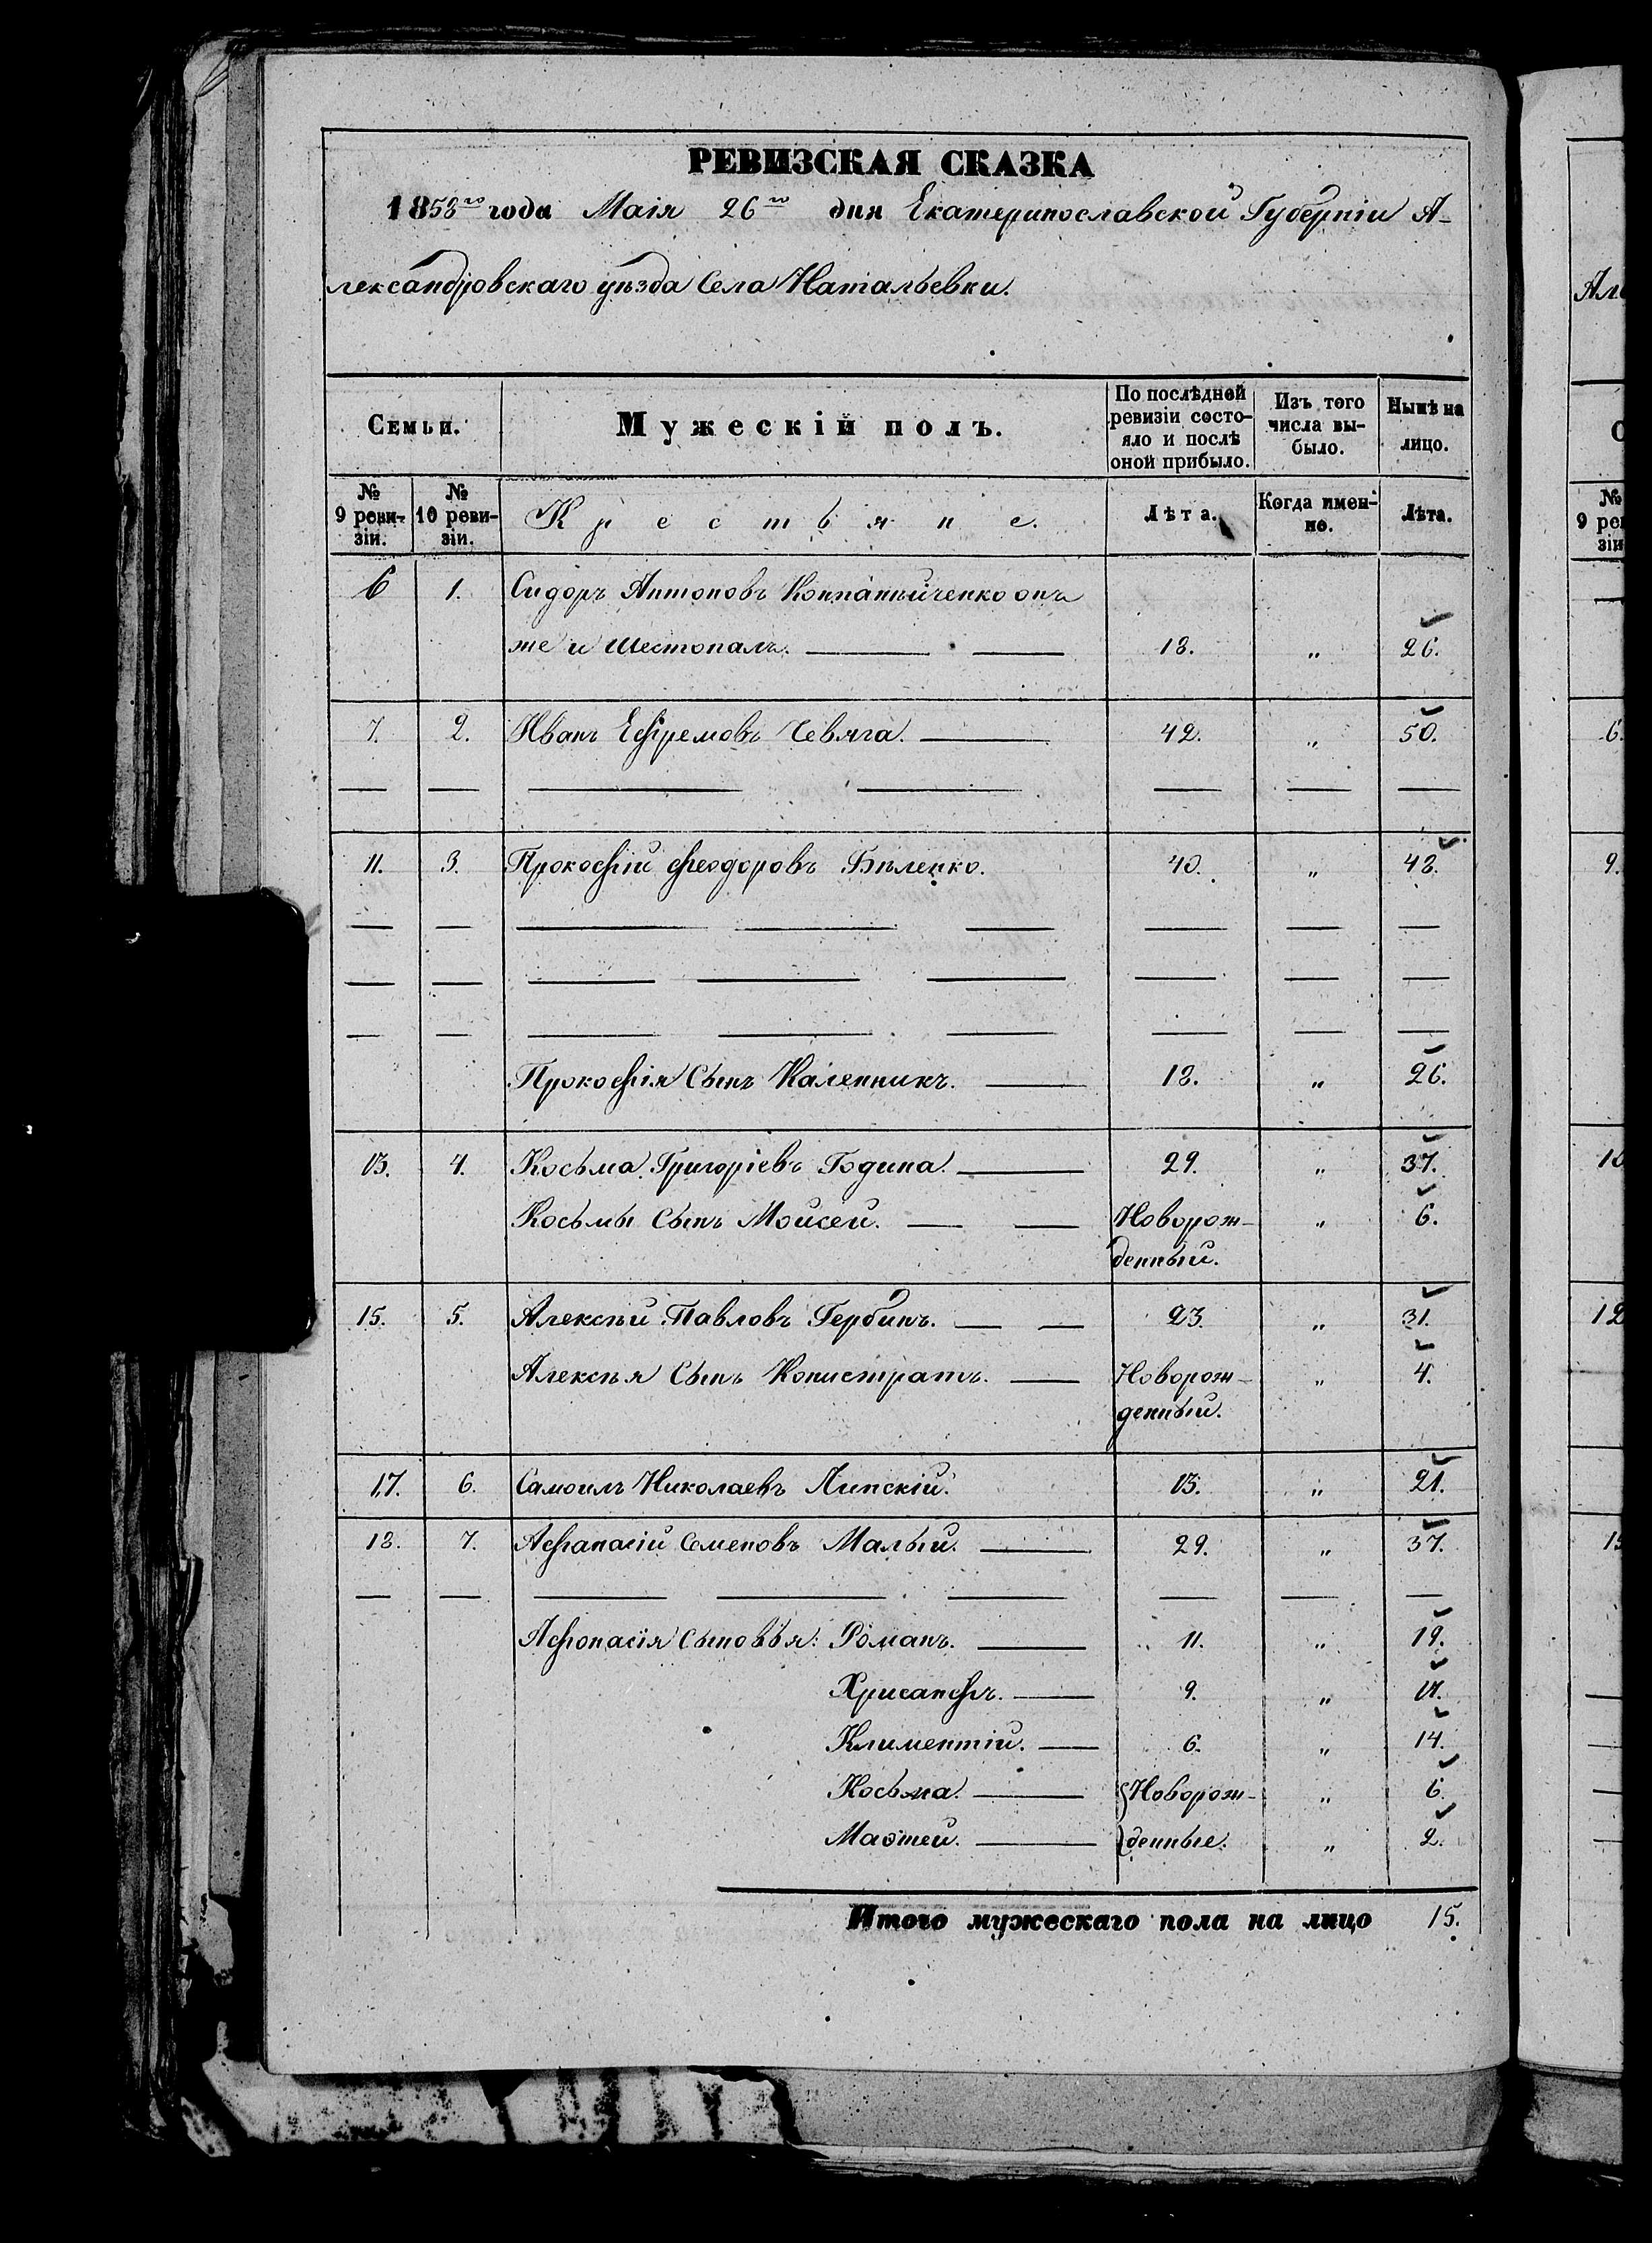 РЕВИЗСКАЯ СКАЗКА
1858го года Маія 26го дня Екатеринославской Губерніи А-
лександровскаго уѣзда Села Натальевки.
Семьи. Мужескій полъ. По послѣдней ревизіи состо-яло и послѣ оной прибыло. Изъ того числа вы-было. Нынѣ на лицо.
№ 9 реви-зіи. № 10 реви-зіи. Крестьяне. Лѣта. Когда имен-но. Лѣта.
6 1. Сидоръ Антоновъ онъ
же и Шестопалъ. 18. „ 26.
7. 2. Иванъ Ефремовъ Чевяга. 42. „ 50.
11. 3. Прокофій Феодоровъ Бѣленко. 40. „ 48.
Прокофія Сынъ Каленникъ. 18. „ 26.
13. 4. Косьма Григоріевъ Година. 29. „ 37.
Косьмы Сынъ Моисей. Новорож- „ 6.
денный.
15. 5. Алексѣй Павловъ Гербинъ. 23 „ 31.
Алексѣя Сынъ Конистратъ. Новорож- „ 4.
денный.
17. 6. Самоилъ Николаевъ Липскій. 13. „ 21.
18. 7. Афанасій Семеновъ Малый. 29. „ 37.
Афонасія Сыновья: Романъ. 11. „ 19.
Хрисанфъ. 9. „ 17.
Климентій. 6. „ 14.
Косьма. Новорож- „ 6.
Маѳтей. денные. „ 2.
Итого мужескаго пола на лицо 15.
Ал
С
№
9 рев
зіи
6.
9.
10
12
15